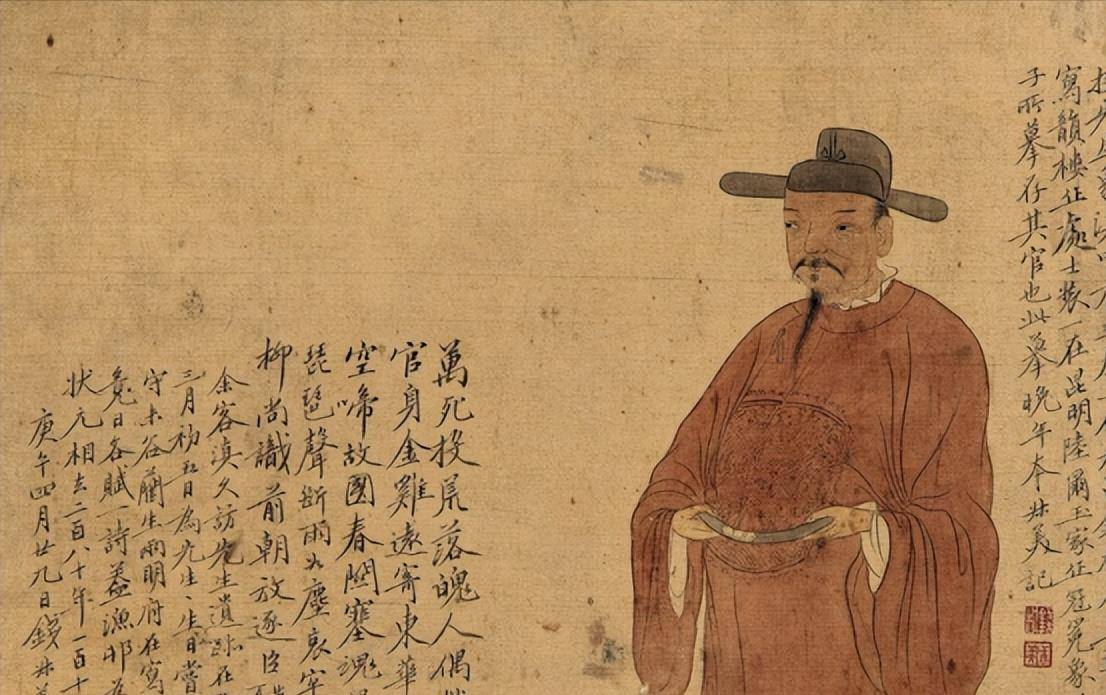 寫韻樓作處士裝一在昆明陸爾玉家作冠冕象
子所摹存其官也此摹晚年本叔美記
萬死投荒落魄人偶
官身金雞遠寄東華
空啼故國春關塞魂
琵琶聲斷雨如塵哀牢
柳尚識前朝放逐臣
余客滇久訪先生遺跡在
三月初五日為先生生日嘗
守未谷蘭生兩明府在寫
日各賦一詩蓋漁邨為
狀元相去二百八十年一百十
庚午四月廿九日錢叔美